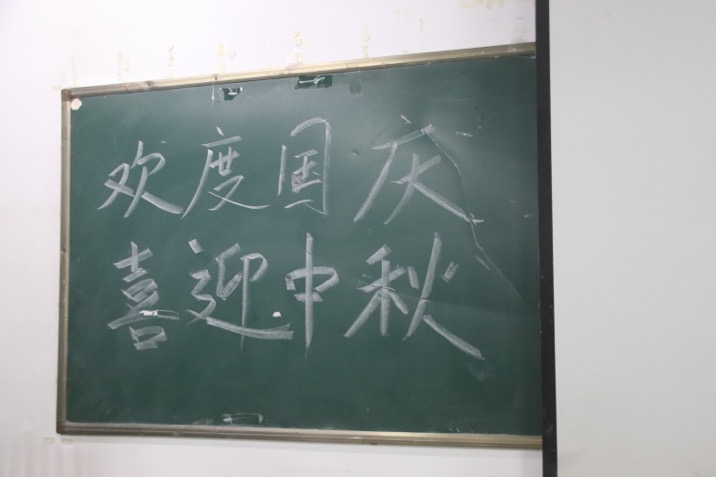 欢度国庆
喜迎中秋